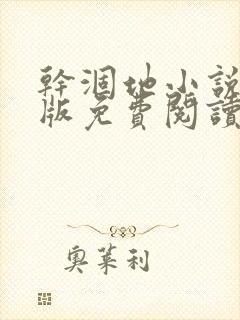 幹涸地小說
版免費閱讀
奧萊利